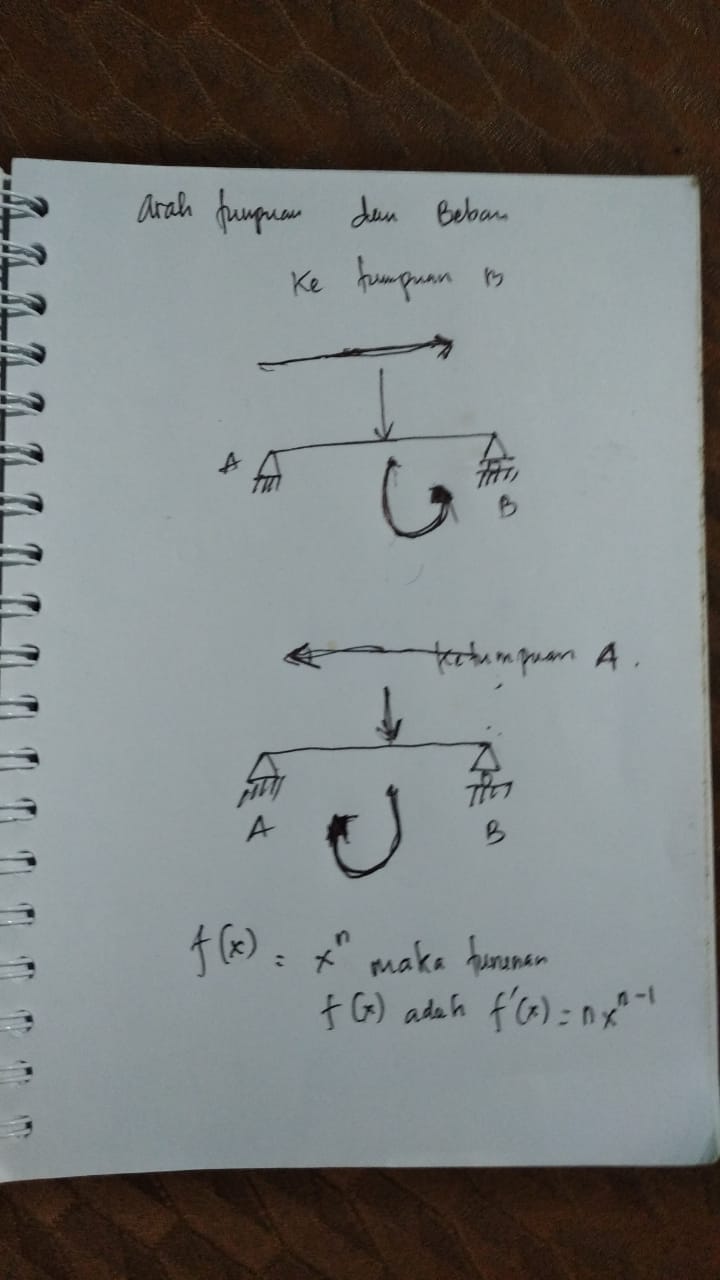 Arah tumpuan dan Beban
Ke tumpuan B
A
B
Ketumpuan A.
A
B
f(x) = xⁿ maka turunan
f(x) adah f'(x) = nxⁿ⁻¹